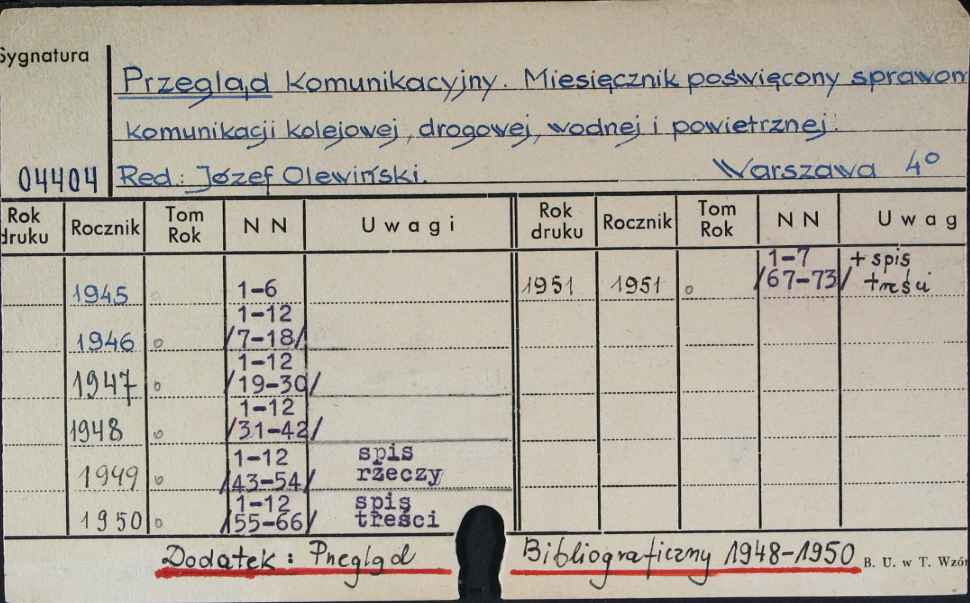 Sygnatura
Przegląd Komunikacyjny. Miesięcznik poświęcony sprawom
komunikacji kolejowej, drogowej, wodnej i powietrznej.
04404 Red: Józef Olewiński. Warszawa 4°
Rok druku Rocznik Tom Rok NN Uwagi Rok druku Rocznik Tom Rok NN Uwag
1945 o 1-6 1951 1951 o 1-7 /67-73/ + spis treści
1946 o 1-12 /7-18/
1947 o 1-12 /19-30/
1948 o 1-12 /31-42/
1949 o 1-12 /43-54/ spis rzeczy
1950 o 1-12 /55-66/ spis treści
Dodatek: Przegląd Bibliograficzny 1948-1950
B. U. w T. Wzór